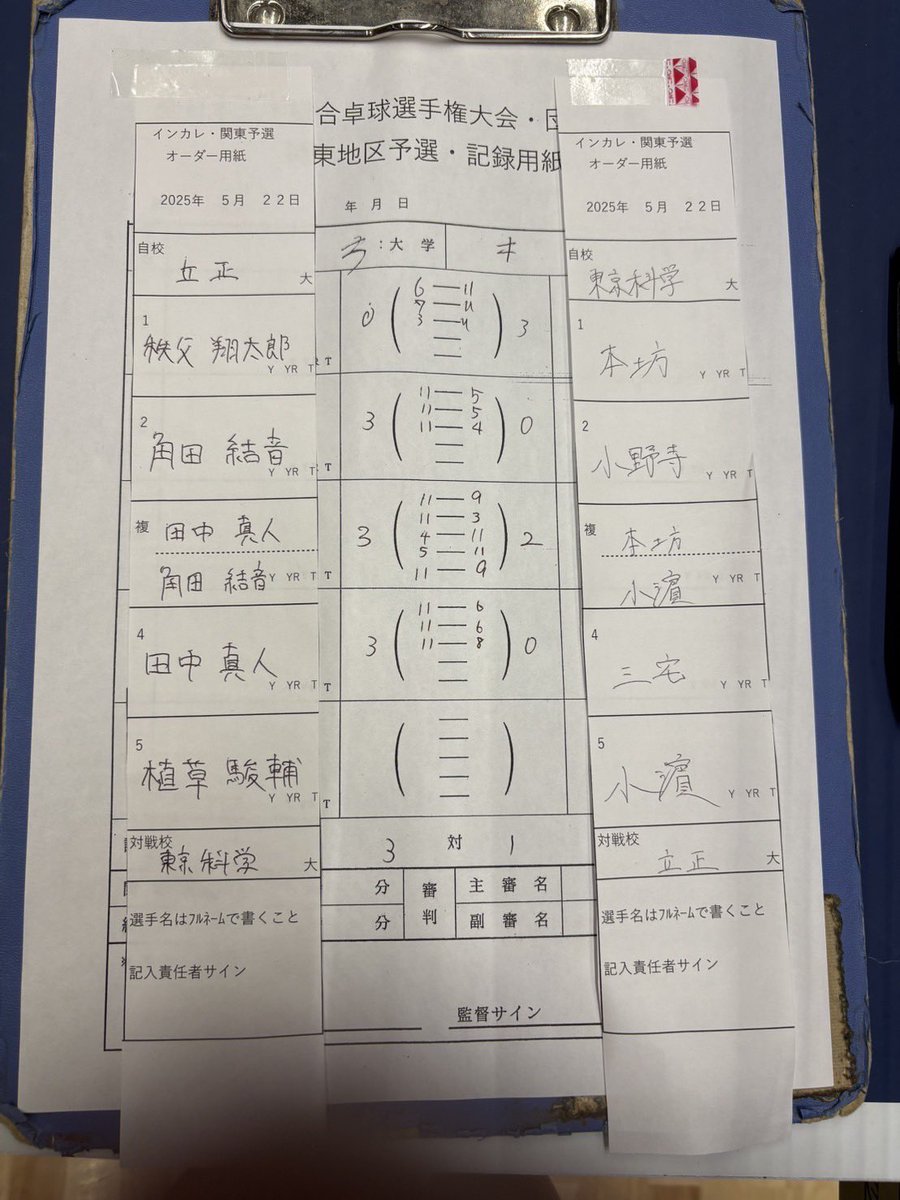 インカレ・関東予選
オーダー用紙
2025年 5月 22日
自校
立正 大
1
秩父 翔太郎
Y YR T
2
角田 結音
Y YR T
複 田中 真人
角田 結音
Y YR T
4
田中 真人
Y YR T
5
植草 駿輔
Y YR T
対戦校
東京科学 大
選手名はフルネームで書くこと
記入責任者サイン
合卓球選手権大会・団
東地区予選・記録用紙
年 月 日
大 学
0 ( 6 — 11
7 — 11
3 — 11 ) 3
T
3 ( 11 — 5
11 — 5
11 — 4 ) 0
T
3 ( 11 — 9
11 — 3
4 — 11
5 — 11
11 — 9 ) 2
T
3 ( 11 — 6
11 — 6
11 — 8 ) 0
T
( )
T
3 対 1
分 審判 主審名
分 副審名
監督サイン
インカレ・関東予選
オーダー用紙
2025年 5月 22日
自校
東京科学 大
1
本坊
Y YR T
2
小野寺
Y YR T
複 本坊
小濵
Y YR T
4
三宅
Y YR T
5
小濵
Y YR T
対戦校
立正 大
選手名はフルネームで書くこと
記入責任者サイン